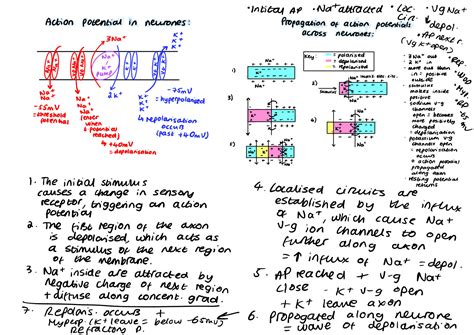 Action potential in neurones:
3Na+
Na+
K+
pump
2K+
K+
K+
K+
-75mV
= hyperpolarised
Na+
Na+
-55mV
= threshold
potential
Na+
Na+
(later
when
potential
reached)
↳ +40mV
= depolarisation
K+
K+
↳ repolarisation
occurs
(past +40mV)
• Initial AP • Na+ attracted
• Vg Na+
Propagation of action potentials
across neurones:
Key:
= polarised
= depolarised
= repolarised
1)
2)
3)
4)
5)
• 3Na+ out
• 2K+ in
• more out
than in
stimulus
makes inside
positive
sodium v-g
channels
open = becomes
more positively
charged
depolarisation
potassium v-g
channels
open
= repolarisation
occurs
+ action
potential
propagated
along axon
resting potential
returns
1. The initial stimulus
causes a change in sensory
receptor, triggering an action
potential
2. The first region of the axon
is depolarised, which acts as
a stimulus of the next region
of the membrane.
3. Na+ inside are attracted by
negative charge of next region
+ diffuse along concent. grad.
7. Repolaris. occurs +
Hyperp (K+ leave = below -65mV)
Refractory p.
4. Localised circuits are
established by the influx
of Na+, which cause Na+
v-g ion channels to open
further along axon
= ↑ influx of Na+ = depol.
5. AP reached + v-g Na+
close - K+ v-g open
+ K+ leave axon
6. Propagated along neurone
= wave of depolarisation